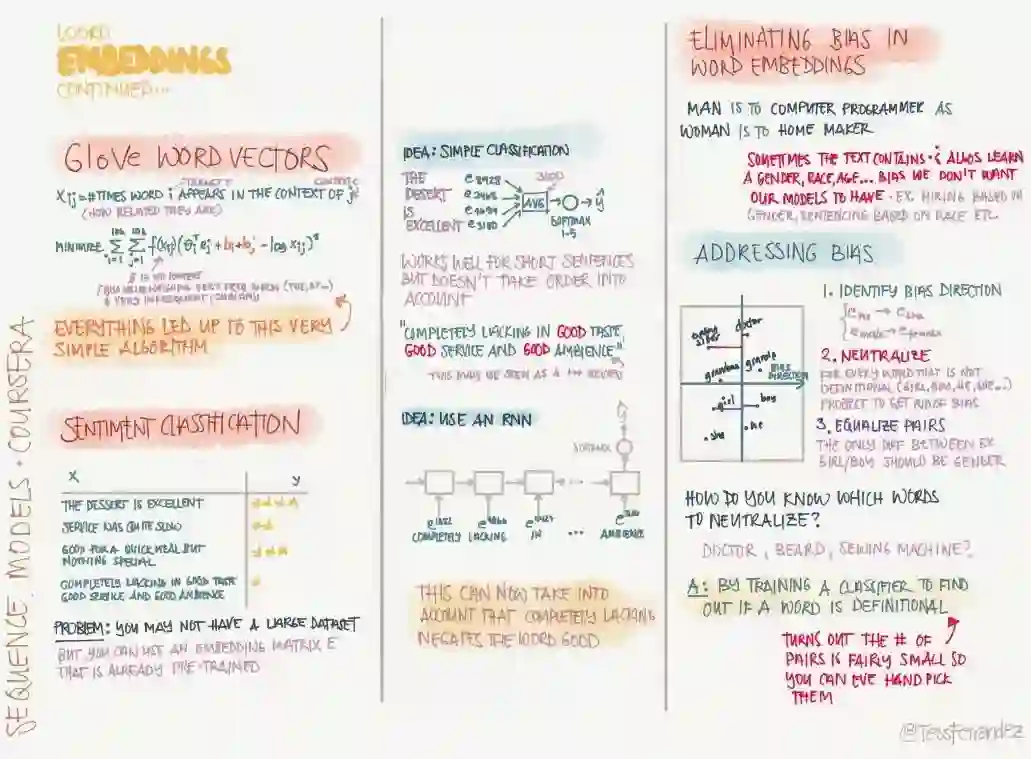 WORD
EMBEDDINGS
CONTINUED...
GloVe WORD VECTORS
TARGET
CONTEXT
Xij = # TIMES WORD i APPEARS IN THE CONTEXT OF j
(HOW RELATED THEY ARE)
MINIMIZE
EVERYTHING LED UP TO THIS VERY
SIMPLE ALGORITHM
SENTIMENT CLASSIFICATION
X y
THE DESSERT IS EXCELLENT
SERVICE WAS QUITE SLOW
GOOD FOR A QUICK MEAL BUT
NOTHING SPECIAL
COMPLETELY LACKING IN GOOD TASTE
GOOD SERVICE AND GOOD AMBIENCE
PROBLEM: YOU MAY NOT HAVE A LARGE DATASET
BUT YOU CAN USE AN EMBEDDING MATRIX E
THAT IS ALREADY PRE-TRAINED
SEQUENCE MODELS · COURSERA
IDEA: SIMPLE CLASSIFICATION
THE e8928
DESERT e2468
IS e4694
EXCELLENT e3180
300D
AVG
ŷ
SOFTMAX
1-5
WORKS WELL FOR SHORT SENTENCES
BUT DOESN'T TAKE ORDER INTO
ACCOUNT
"COMPLETELY LACKING IN GOOD TASTE,
GOOD SERVICE AND GOOD AMBIENCE"
THIS MAY BE SEEN AS A +++ REVIEW
IDEA: USE AN RNN
ŷ
SOFTMAX
...
COMPLETELY LACKING IN ... AMBIENCE
THIS CAN NOW TAKE INTO
ACCOUNT THAT COMPLETELY LACKING
NEGATES THE WORD GOOD
ELIMINATING BIAS IN
WORD EMBEDDINGS
MAN IS TO COMPUTER PROGRAMMER AS
WOMAN IS TO HOME MAKER
SOMETIMES THE TEXT CONTAINS & ALGOS LEARN
A GENDER, RACE, AGE... BIAS WE DON'T WANT
OUR MODELS TO HAVE · EX. HIRING BASED ON
GENDER, SENTENCING BASED ON RACE ETC.
ADDRESSING BIAS
doctor
grandma
grandpa
BIAS
DIRECTION
girl
boy
she
he
1. IDENTIFY BIAS DIRECTION
2. NEUTRALIZE
FOR EVERY WORD THAT IS NOT
DEFINITIONAL (GIRL, BOY, HE, SHE...)
PROJECT TO GET RID OF BIAS
3. EQUALIZE PAIRS
THE ONLY DIFF BETWEEN EX
GIRL/BOY SHOULD BE GENDER
HOW DO YOU KNOW WHICH WORDS
TO NEUTRALIZE?
DOCTOR, BEARD, SEWING MACHINE?
A: BY TRAINING A CLASSIFIER TO FIND
OUT IF A WORD IS DEFINITIONAL
TURNS OUT THE # OF
PAIRS IS FAIRLY SMALL SO
YOU CAN EVE HAND PICK
THEM
@TessFerrandez